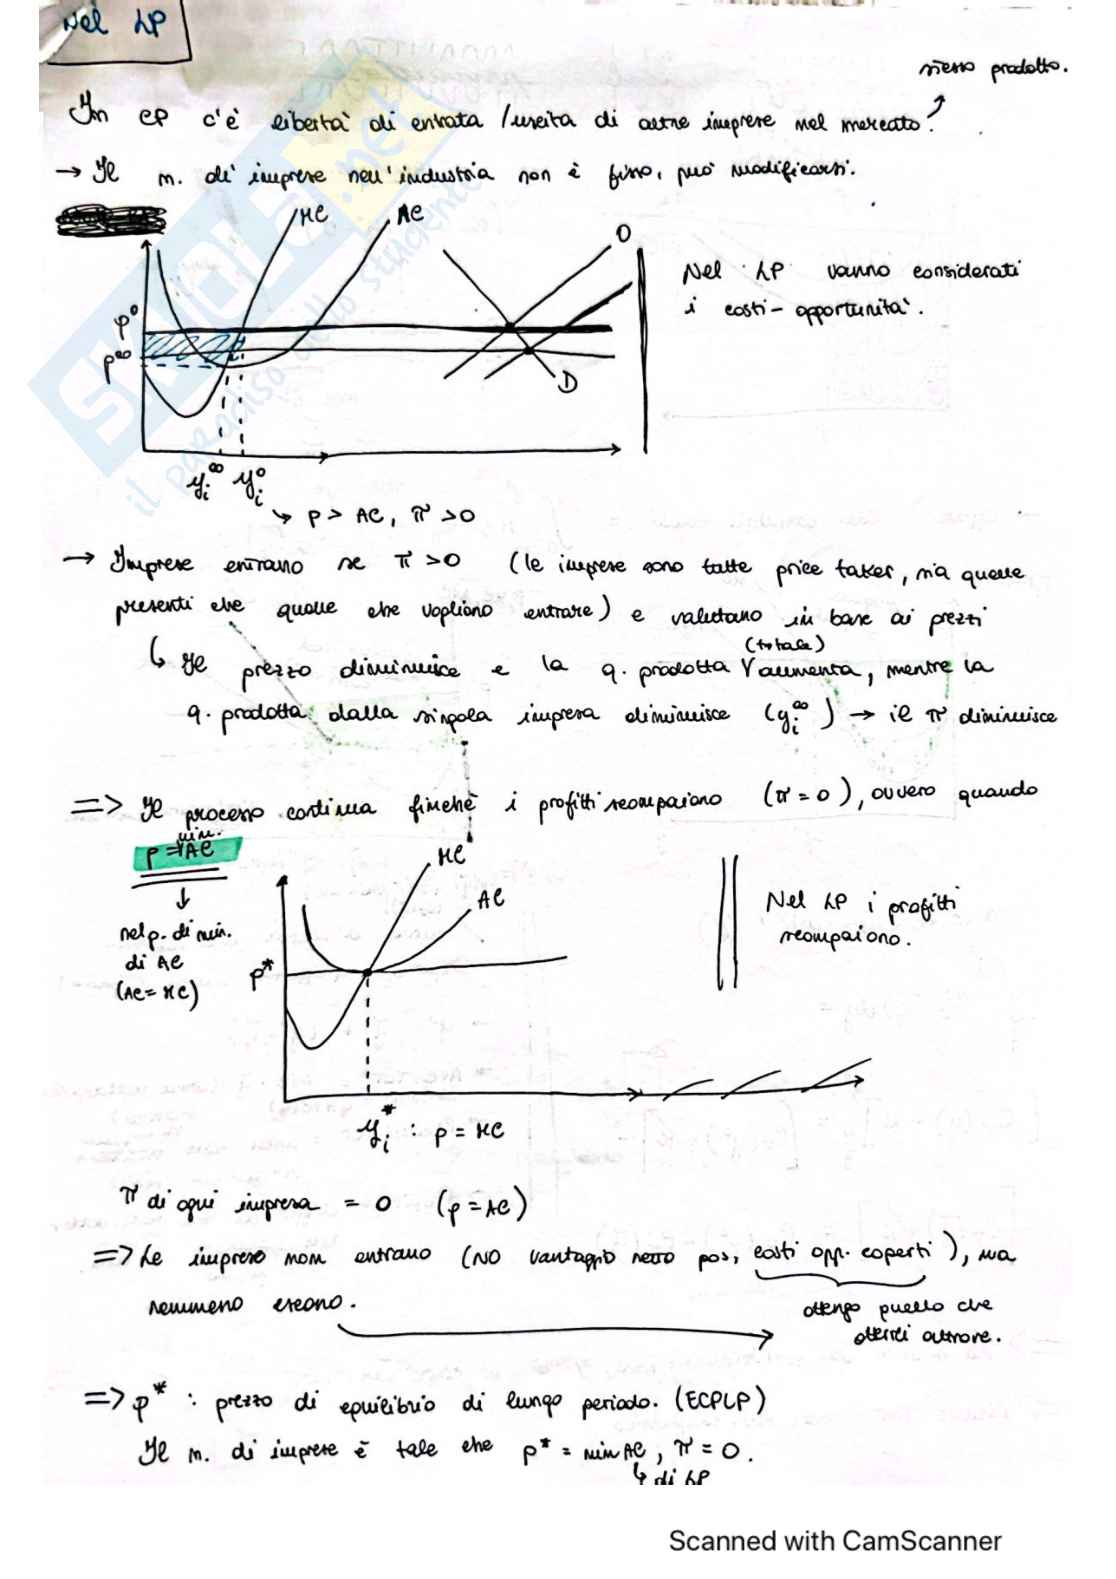 Nel LP
stesso prodotto.
In CP c'è libertà di entrata / uscita di altre imprese nel mercato.
→ Il n. di imprese nell'industria non è fisso, può modificarsi.
MC
AC
O
D
p⁰
p^∞
y_i^∞ y_i^0
Nel LP vanno considerati
i costi-opportunità.
↳ p > AC, π > 0
→ Imprese entrano se π > 0 (le imprese sono tutte price taker, sia quelle
presenti che quelle che vogliono entrare) e valutano in base ai prezzi
↳ Il prezzo diminuisce e la q. prodotta (totale) aumenta, mentre la
q. prodotta dalla singola impresa diminuisce (y_i^∞) → il π diminuisce
=> Il processo continua finchè i profitti scompaiono (π = 0), ovvero quando
p = min. AC
↓
nel p. di min.
di AC
(AC = MC)
MC
AC
p*
y_i^* : p = MC
Nel LP i profitti
scompaiono.
π di ogni impresa = 0 (p = AC)
=> Le imprese non entrano (NO vantaggio netto pos, costi opp. coperti), ma
nemmeno escono.
ottengo quello che
otterrei altrove.
=> p* : prezzo di equilibrio di lungo periodo. (ECPLP)
Il n. di imprese è tale che p* = min AC, π = 0.
↳ di LP
SKUOLA.net
il paradiso dello studente
Scanned with CamScanner